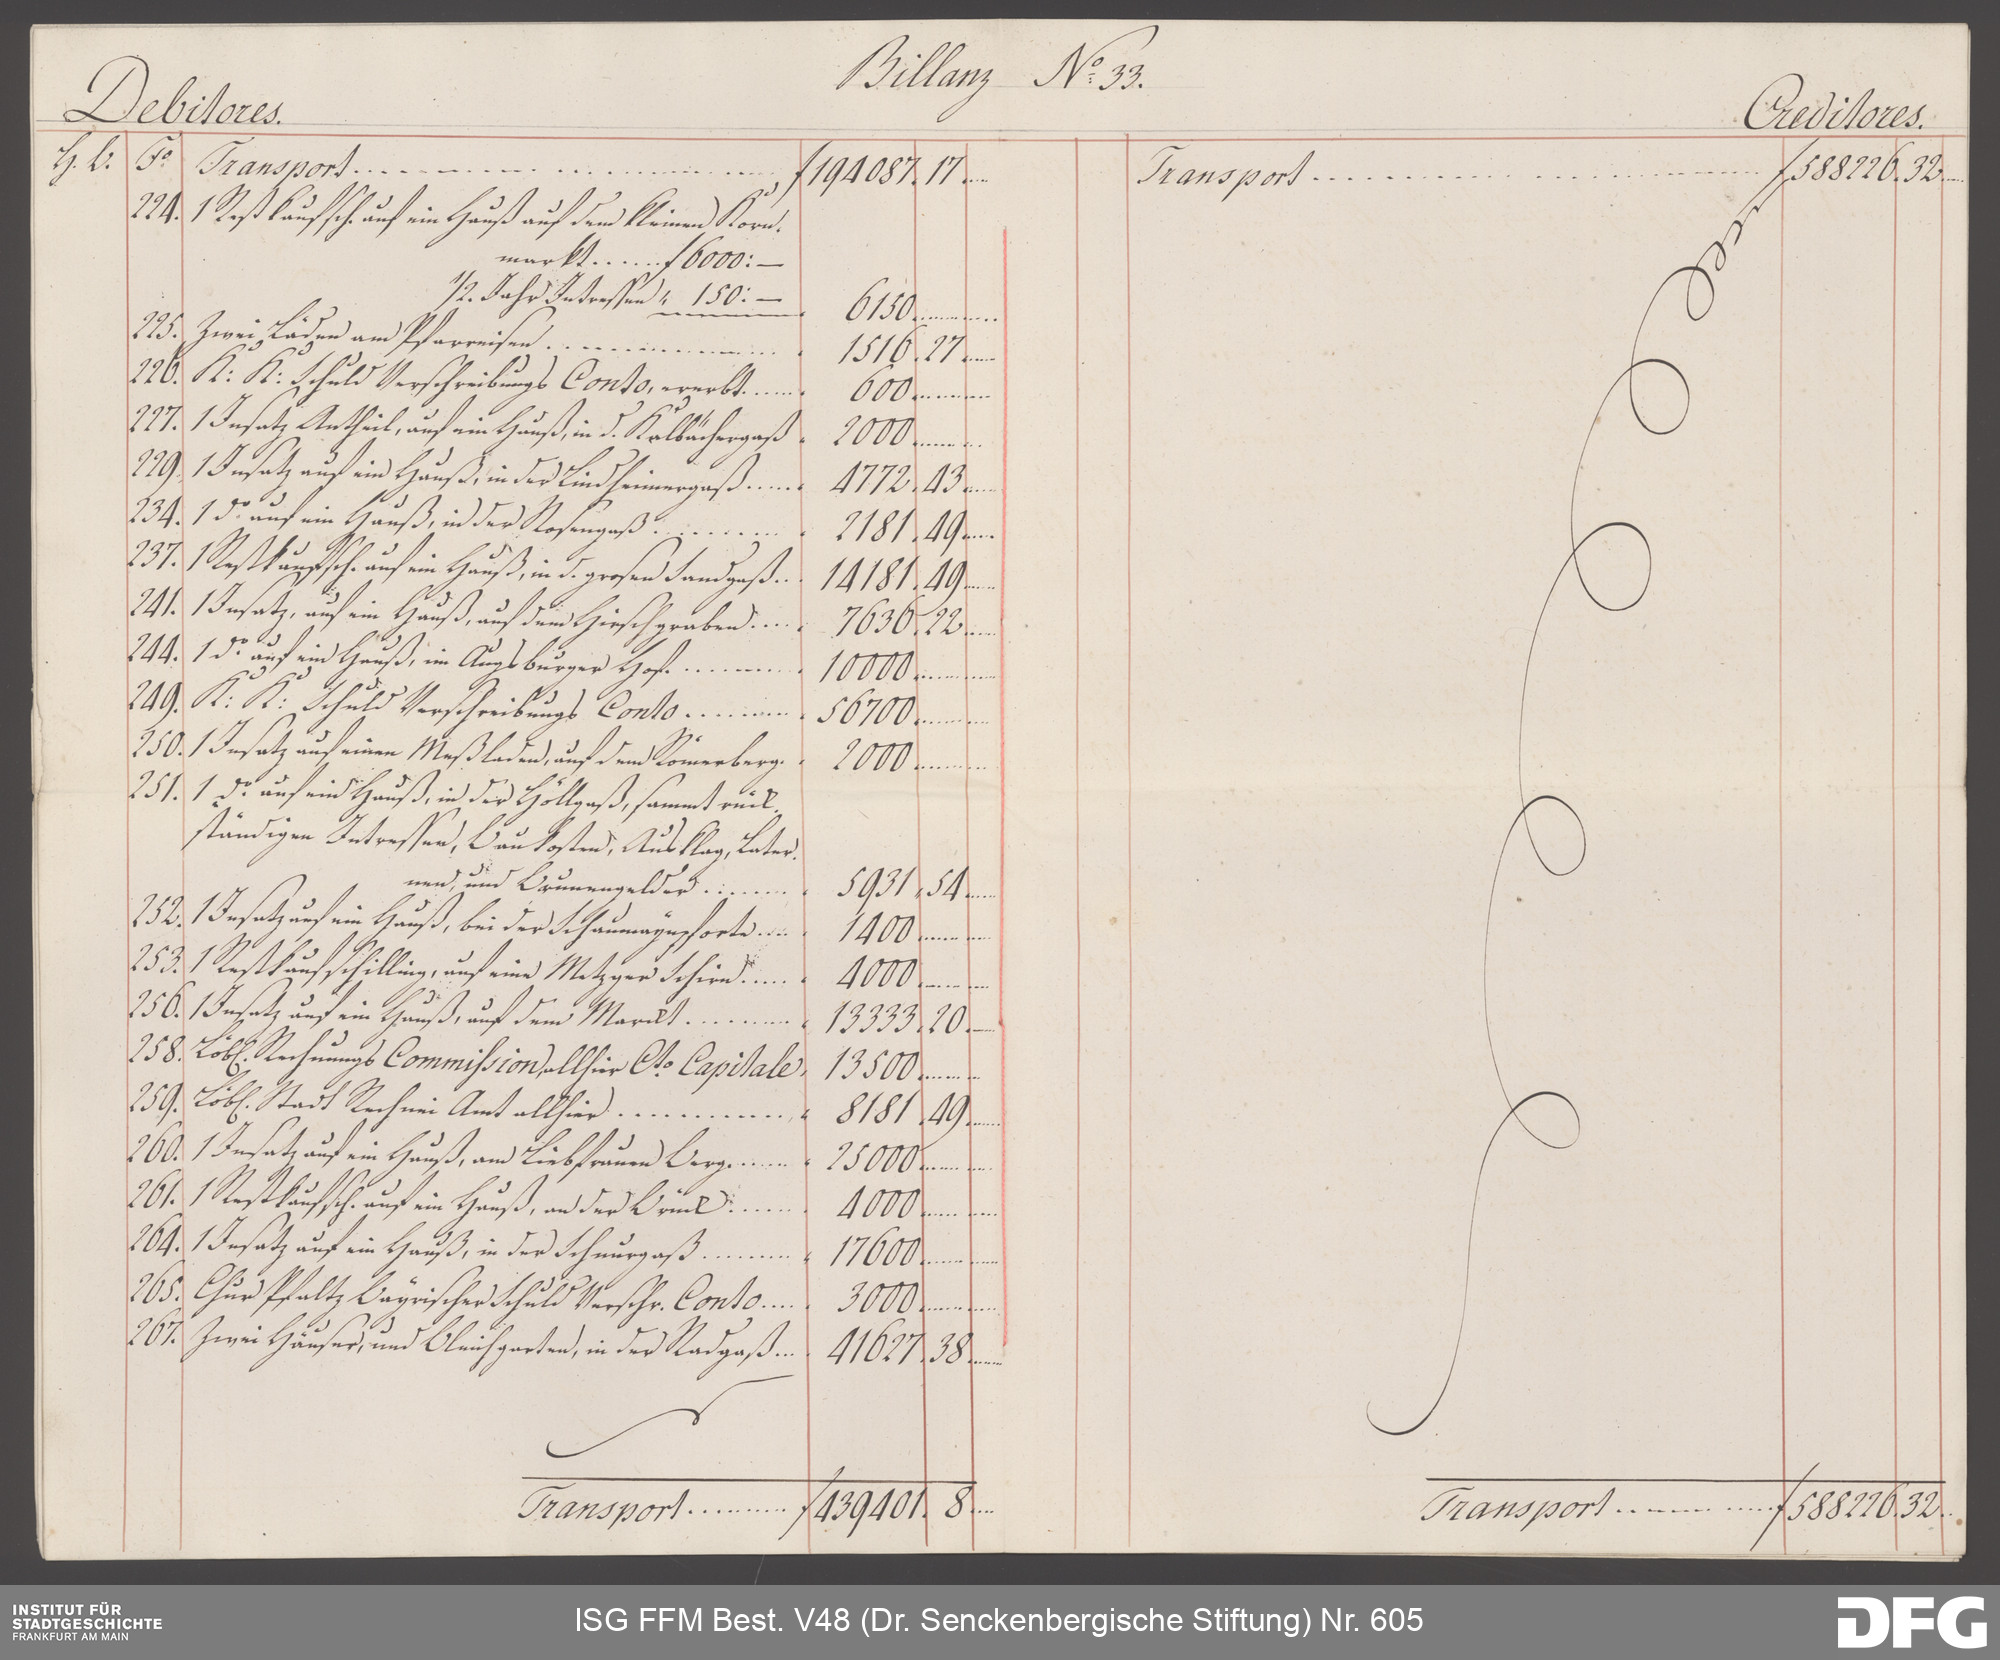 Billanz No. 33.
Debitores.
Creditores.
H. b. Fo. Transport f 194087. 17
224. 1 Restkaufsch. auf ein Hauß auf dem kleinen Korn-
markt f 6000: —
1/2. Jahr Intressen " 150: —
6150
225. Zwei Läden am Pfarreisen 1516. 27
226. K: K: Schuld Verschreibungs Conto, ererbt 600
227. 1 Insatz Antheil, auf ein Hauß, in d. Kälbächergaß 2000
229. 1 Insatz auf ein Hauß, in der Lindheimergaß 4772. 43
234. 1 do. auf ein Hauß, in der Rosengaß 2181. 49
237. 1 Restkaufsch. auf ein Hauß, in d. grosen Sandgaß 14181. 49
241. 1 Insatz, auf ein Hauß, auf dem Hirschgraben 7636. 22
244. 1 do. auf ein Hauß, im Augsburger Hof 10000
249. K: K: Schuld Verschreibungs Conto 56700
250. 1 Insatz auf einen Meßladen, auf dem Römerberg 2000
251. 1 do. auf ein Hauß, in der Höllgaß, sammt rück-
ständigen Intressen, Baukosten, Ausklag, Later-
nen, und Brunnengelder 5931. 54
252. 1 Insatz auf ein Hauß, bei der Schaumaynpforte 1400
253. 1 Restkaufschilling, auf eine Metzger Schirn 4000
256. 1 Insatz auf ein Hauß, auf dem Markt 13333. 20
258. Löbl. Rechnungs Commission, allhier Cto Capitale 13500
259. Löbl. Stadt Rechnei Amt allhier 8181. 49
260. 1 Insatz auf ein Hauß, am Liebfrauen Berg 25000
261. 1 Restkaufsch. auf ein Hauß, an der Brück 4000
264. 1 Insatz auf ein Hauß, in der Schnurgaß 17600
265. Chur Pfaltz Bayrischer Schuld Verschr. Conto 3000
267. Zwei Häuser, und Bleichgarten, in der Radgaß 41627. 38
Transport f 439401. 8
Transport f 588226. 32
Transport f 588226. 32
INSTITUT FÜR
STADTGESCHICHTE
FRANKFURT AM MAIN
ISG FFM Best. V48 (Dr. Senckenbergische Stiftung) Nr. 605
DFG